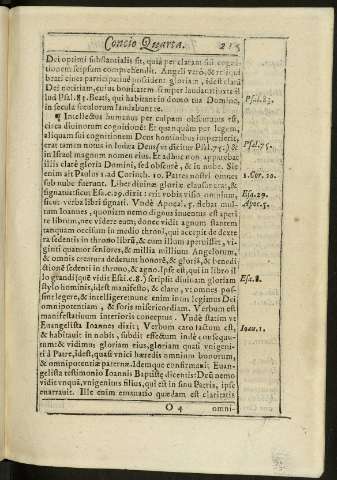 Concio Quarta. 215
Dei optimi substantialis sit, quia per claram sui cogni-
tionem seipsum comprehendit. Angeli verò, & reliqui
beati eius participatiuè possident gloriam, idest claram
Dei notitiam, cuius bonitatem semper laudant iuxta il-
lud Psal. 83. Beati, qui habitant in domo tua Domine,
in secula seculorum laudabunt te.
Psal. 83.
¶ Intellectus humanus per culpam obscuratus est,
circa diuinorum cognitionem: Et quanquàm per legem,
aliquam sui cognitionem Deus hominibus impertierit,
erat tamen notus in Iudæa Deus (vt dicitur Psal. 75.) &
Psal. 75.
in Israel magnum nomen eius. Et adhuc non apparebat
illis clarè gloria Domini, sed obscurè, & in nube. Sic
enim ait Paulus 1. ad Corinth. 10. Patres nostri omnes
1. Cor. 10.
sub nube fuerunt. Liber diuinæ gloriæ clausus erat, &
signatus sicut Esa. c. 29. dixit: erit vobis visio omnium,
Esa. 29.
sicut verba libri signati. Vndè Apoca. 5. flebat mul-
Apoc. 5.
tum Ioannes, quoniam nemo dignus inuentus est aperi
re librum, nec videre eum; donec vidit agnum stantem
tanquam occisum in medio throni, qui accepit de dexte
ra sedentis in throno librũ, & cum illum aperuisset, vi-
ginti quatuor seniores, & millia millium Angelorum,
& omnis creatura dederunt honorẽ, & gloriã, & benedi
ctionẽ sedenti in throno, & agno. Ipse est, qui in libro il
lo grandi (quẽ vidit Esai. c. 8.) scripsit diuinam gloriam
Esa. 8.
stylo hominis, idest manifesto, & claro, vt omnes pos-
sint legere, & intelligere: nunc enim intus legimus Dei
omnipotentiam, & foris misericordiam. Verbum est
manifestatiuum interioris conceptus. Vndè statim vt
Euangelista Ioannes dixit; Verbum caro factum est,
Ioan. 1.
& habitauit in nobis, subdit effectum indè consequu-
tum: & vidimus gloriam eius, gloriam quasi vnigeni-
ti à Patre, idest, quasi vnici hæredis omnium bonorum,
& omnipotentiæ paternæ. Idemque confirmauit Euan-
gelista testimonio Ioannis Baptistæ dicentis: Deũ nemo
vidit vnquã, vnigenitus filius, qui est in sinu Patris, ipse
enarrauit. Ille enim emanatio quædam est claritatis
O 4 omni-